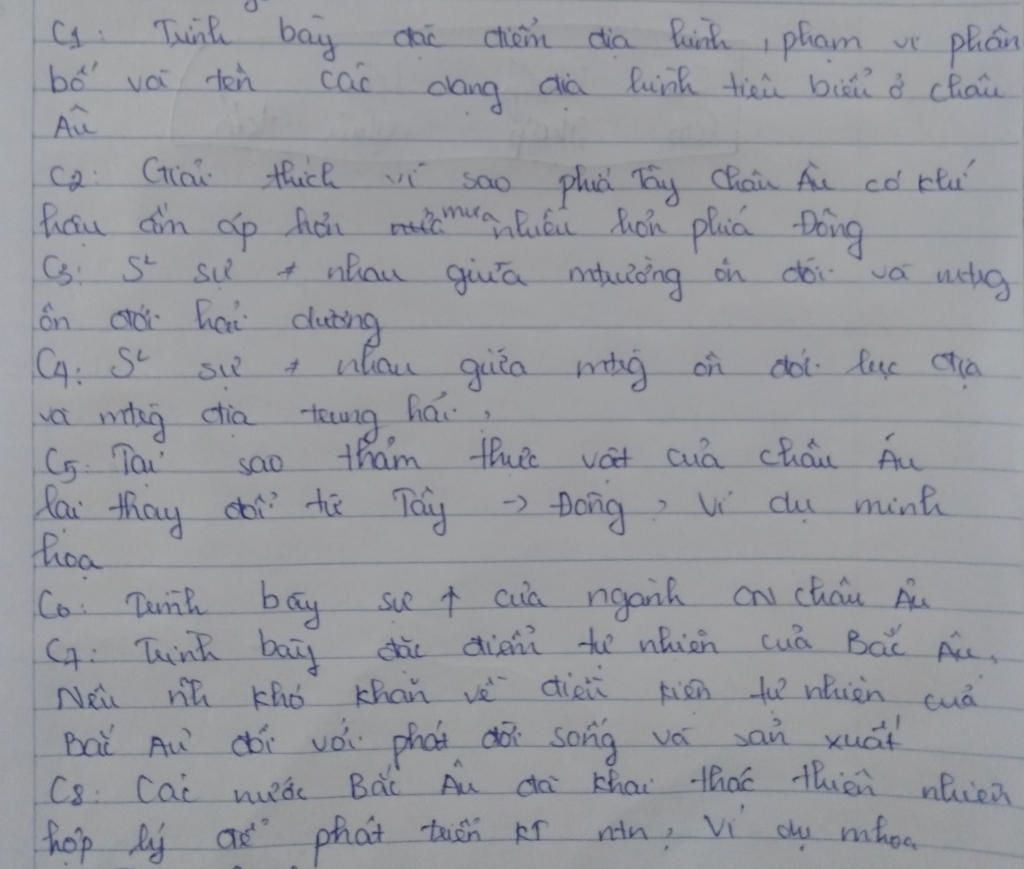 C1: Trình bày đặc điểm địa hình, phạm vi phân
bố và tên các dạng địa hình tiêu biểu ở châu
Âu
C2: Giải thích vì sao phía Tây Châu Âu có khí
hậu ấm áp hơn mưa nhiều hơn phía Đông
C3: S² sự ≠ nhau giữa mtrường ôn đới và mtrg
ôn đới hải dương
C4: S² sự ≠ nhau giữa mtrg ôn đới lục địa
và mtrg địa trung hải.
C5: Tại sao thảm thực vật của châu Âu
lại thay đổi từ Tây → Đông, Ví dụ minh
họa
C6: Trình bày sự ↑ của ngành CN châu Âu
C7: Trình bày đặc điểm tự nhiên của Bắc Âu.
Nêu nh khó khăn về điều kiện tự nhiên của
Bắc Âu đối với phát đời sống và sản xuất
C8: Các nước Bắc Âu đã khai thác thiên nhiên
hợp lý để phát triển KT ntn, Ví dụ mhoạ